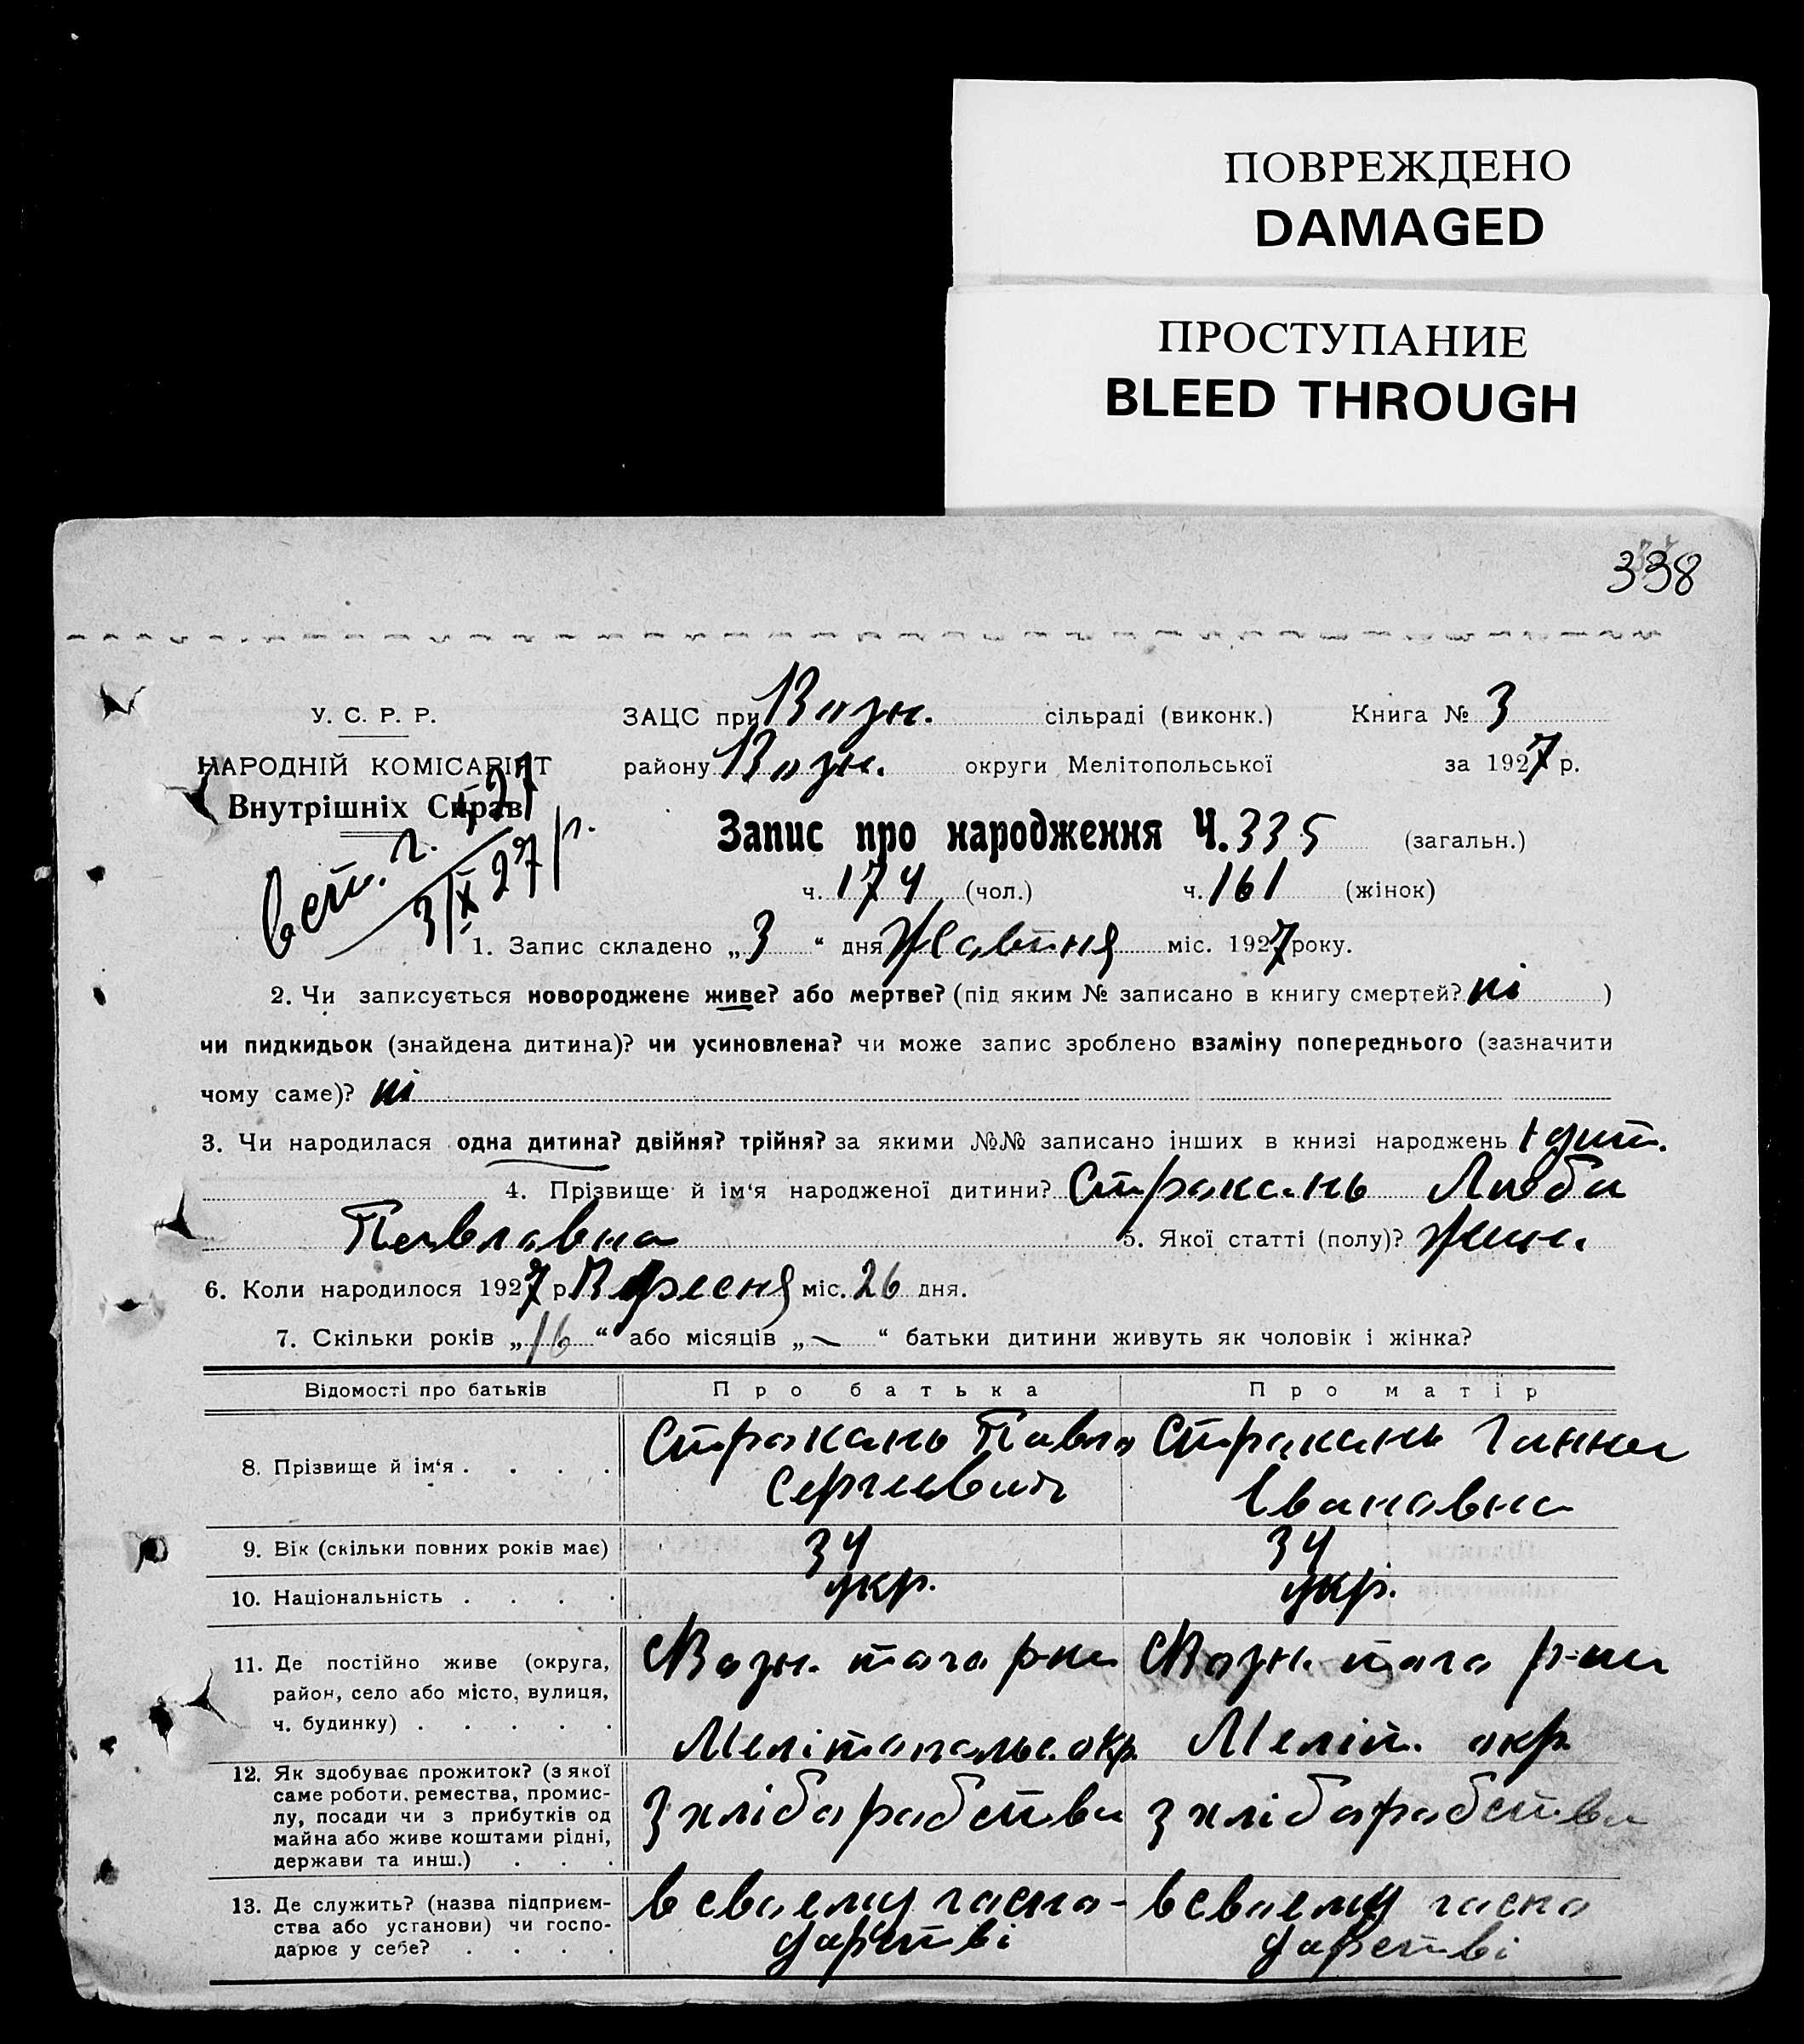 ПОВРЕЖДЕНО
DAMAGED
ПРОСТУПАНИЕ
BLEED THROUGH
338
У. С. Р. Р.
НАРОДНІЙ КОМІСАРІЯТ
Внутрішніх Справ
3/X 27 р.
ЗАЦС при Возн. сільраді (виконк.) Книга № 3
району Возн. округи Мелітопольської за 1927 р.
Запис про народження Ч. 335 (загальн.)
ч. 174 (чол.) ч. 161 (жінок)
1. Запис складено „3“ дня Жовтня міс. 1927 року.
2. Чи записується новороджене живе? або мертве? (під яким № записано в книгу смертей? ні )
чи пидкидьок (знайдена дитина)? чи усиновлена? чи може запис зроблено взаміну попереднього (зазначити
чому саме)? ні
3. Чи народилася одна дитина? двійня? трійня? за якими №№ записано інших в книзі народжень 1 дит.
4. Прізвище й ім‘я народженої дитини? Стракань Люба
Павловна 5. Якої статті (полу)? жін.
6. Коли народилося 1927 р. Вересня міс. 26 дня.
7. Скільки років „16“ або місяців „–“ батьки дитини живуть як чоловік і жінка?
Відомості про батьків Про батька Про матір
8. Прізвище й ім‘я . . . . Стракань Павло Стракань Ганна
Сергиевич Івановна
9. Вік (скільки повних років має) 34 34
10. Національність . . . . укр. укр.
11. Де постійно живе (округа, район, село або місто, вулиця, ч. будинку) . . . . . с Возн. того р-на с Возн. того р-на
Мелітопольс. окр. Меліт. окр.
12. Як здобуває прожиток? (з якої саме роботи, ремества, промислу, посади чи з прибутків од майна або живе коштами рідні, держави та инш.) . . . З хліборобства з хліборобства
13. Де служить? (назва підприємства або установи) чи господарює у себе? . . . . в своему госпо- в своему госпо
дарстві дарстві